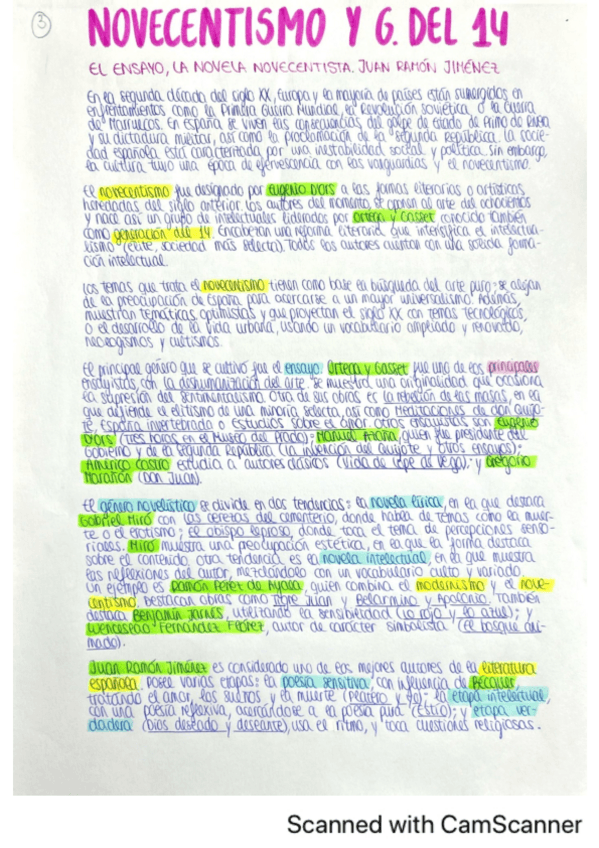 3
NOVECENTISMO Y G. DEL 14
EL ENSAYO, LA NOVELA NOVECENTISTA. JUAN RAMÓN JIMÉNEZ
En la segunda década del siglo XX, Europa y la mayoría de países están sumergidos en
enfrentamientos como la Primera Guerra Mundial, la Revolución soviética, o la Guerra
de Marruecos. En España se viven las consecuencias del golpe de estado de Primo de Rivera
y su dictadura militar, así como la Proclamación de la Segunda República. La socie-
dad española está caracterizada por una inestabilidad social y política. Sin embargo,
la cultura tuvo una época de efervescencia con las vanguardias y el novecentismo.
El novecentismo fue designado por Eugenio D'ors a las formas literarias o artísticas
heredadas del siglo anterior. Los autores del momento se oponen al arte del ochocientos
y nace así un grupo de intelectuales liderados por Ortega y Gasset conocido también
como generación del 14. Encabezan una reforma literaria que intensifica el intelectua-
lismo (élite, sociedad más selecta). Todos los autores cuentan con una sólida forma-
ción intelectual.
Los temas que trata el novecentismo tienen como base la búsqueda del arte puro; se alejan
de la preocupación de España para acercarse a un mayor universalismo. Además,
muestran temáticas optimistas y que proyectan el siglo XX con temas tecnológicos,
o el desarrollo de la vida urbana, usando un vocabulario ampliado y renovado,
neologismos y cultismos.
El principal género que se cultivó fue el ensayo. Ortega y Gasset fue uno de los principales
ensayistas, con La deshumanización del arte. Se muestra una originalidad que ocasiona
la supresión del sentimentalismo. Otra de sus obras es La rebelión de las masas, en la
que defiende el elitismo de una minoría selecta, así como Meditaciones de don Quijo-
te, España invertebrada o Estudios sobre el amor. Otros ensayistas son Eugenio
D'ors (Tres horas en el Museo del Prado); Manuel Azaña, quien fue presidente del
gobierno y de la Segunda República (La invención del Quijote y otros ensayos);
Américo Castro estudia a autores clásicos (Vida de Lope de Vega); y Gregorio
Marañón (Don Juan).
El género novelístico se divide en dos tendencias: la novela lírica, en la que destaca
Gabriel Miró con Las cerezas del cementerio, donde habla de temas como la muer-
te o el erotismo; El obispo leproso, donde toca el tema de percepciones senso-
riales. Miró muestra una preocupación estética, en la que la forma destaca
sobre el contenido. Otra tendencia es la novela intelectual, en la que muestra
las reflexiones del autor, mezclándolo con un vocabulario culto y variado.
Un ejemplo es Ramón Pérez de Ayala, quien combina el modernismo y el nove-
centismo. Destacan obras como Tigre Juan y Belarmino y Apolonio. También
destaca Benjamín Jarnés, utilizando la sensibilidad (Lo rojo y lo azul); y
Wenceslao Fernández Flórez, autor de carácter simbolista (El bosque ani-
mado).
Juan Ramón Jiménez es considerado uno de los mejores autores de la literatura
española. Posee varias etapas: la poesía sensitiva, con influencia de Bécquer,
tratando el amor, los sueños y la muerte (Platero y yo); la etapa intelectual,
con una poesía reflexiva, acercándose a la poesía pura (Estío); y etapa ver-
dadera (Dios deseado y deseante), usa el ritmo, y toca cuestiones religiosas.
Scanned with CamScanner